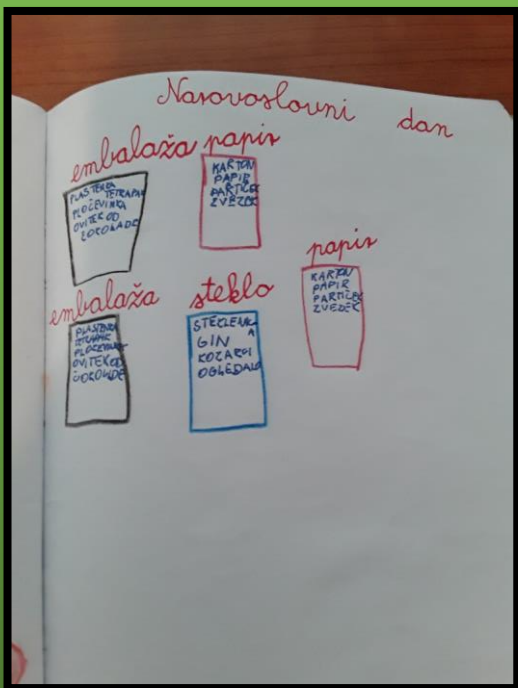 Narovoslovni dan
embalaža
PLASTENKA
TETRAPAK
PLOČEVINKA
OVITEK OD
ČOKOLADE
papir
KARTON
PAPIR
PARTIČEK
ZVEZEK
embalaža
PLASTENKA
TETRAPAK
PLOČEVINKA
OVITEK OD
ČOKOLADE
steklo
STEKLENIC
A
GIN
KOZARCI
OGLEDALO
papir
KARTON
PAPIR
PARTIČEK
ZVEZEK